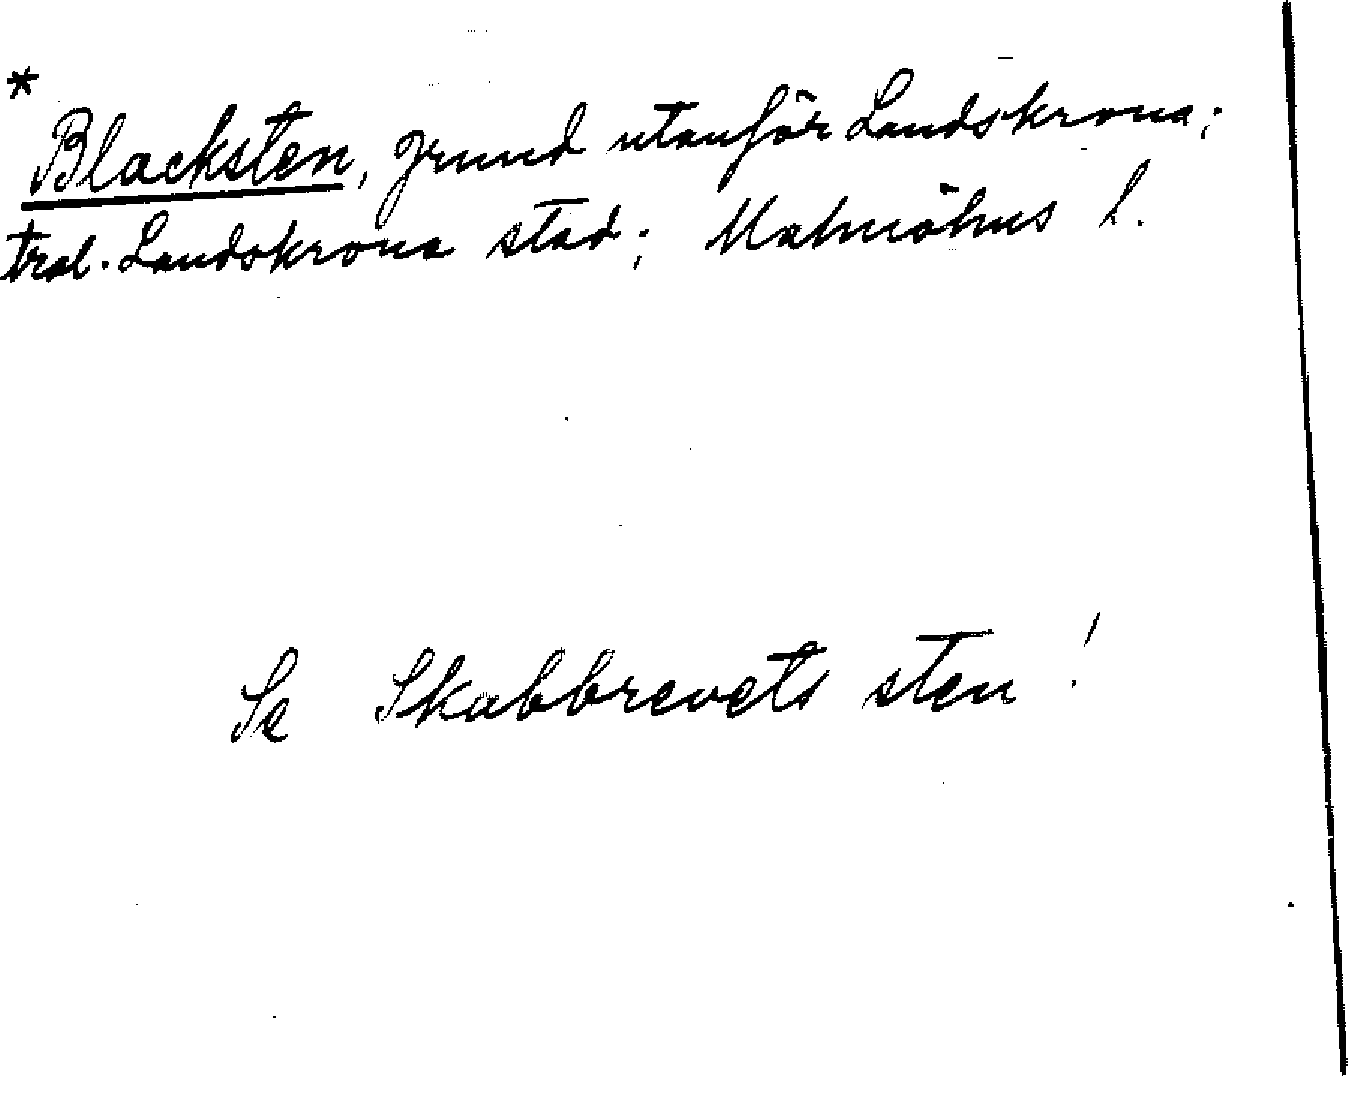 *
Blacksten, grund utanför Landskrona;
tral. Landskrona stad; Malmöhus l.
Se Skabbrevets sten!